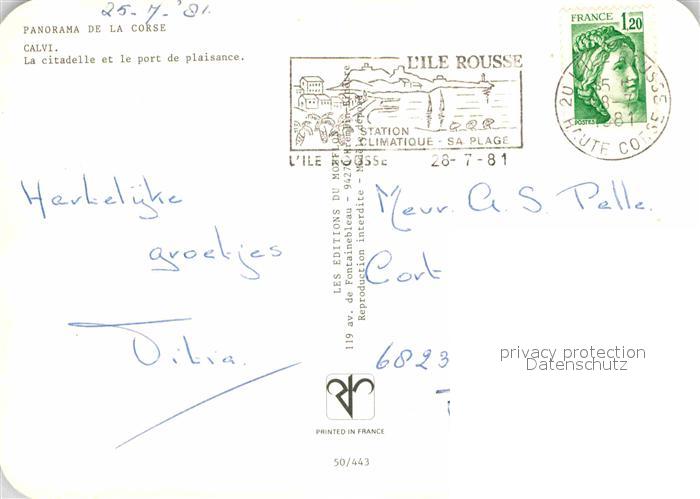 25-7-'81.
PANORAMA DE LA CORSE
CALVI.
La citadelle et le port de plaisance.
FRANCE 1,20
POSTES
L'ILE ROUSSE
STATION
CLIMATIQUE - SA PLAGE
L'ILE ROUSSE 28-7-81
HAUTE CORSE
1981
Hartelijke
groetjes
Titia.
LES EDITIONS DU MOUFLON
119 av. de Fontainebleau - 9427
Reproduction interdite
Mevr. A. S. Pelle.
Cort
6823
privacy protection
Datenschutz
PRINTED IN FRANCE
50/443